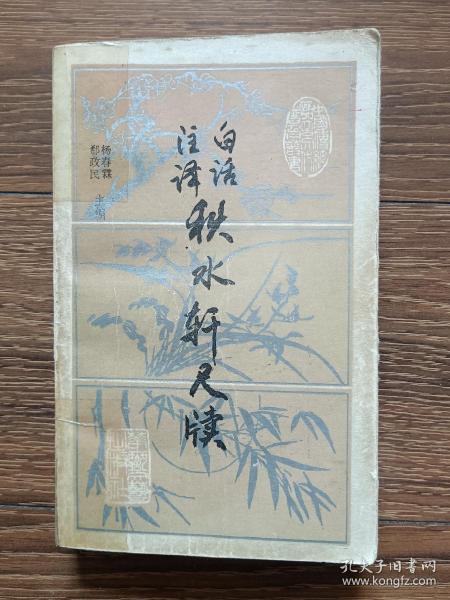 白话
注译
秋水轩尺牍
杨春霖
郗政民 主编
孔夫子旧书网
www.kongfz.com